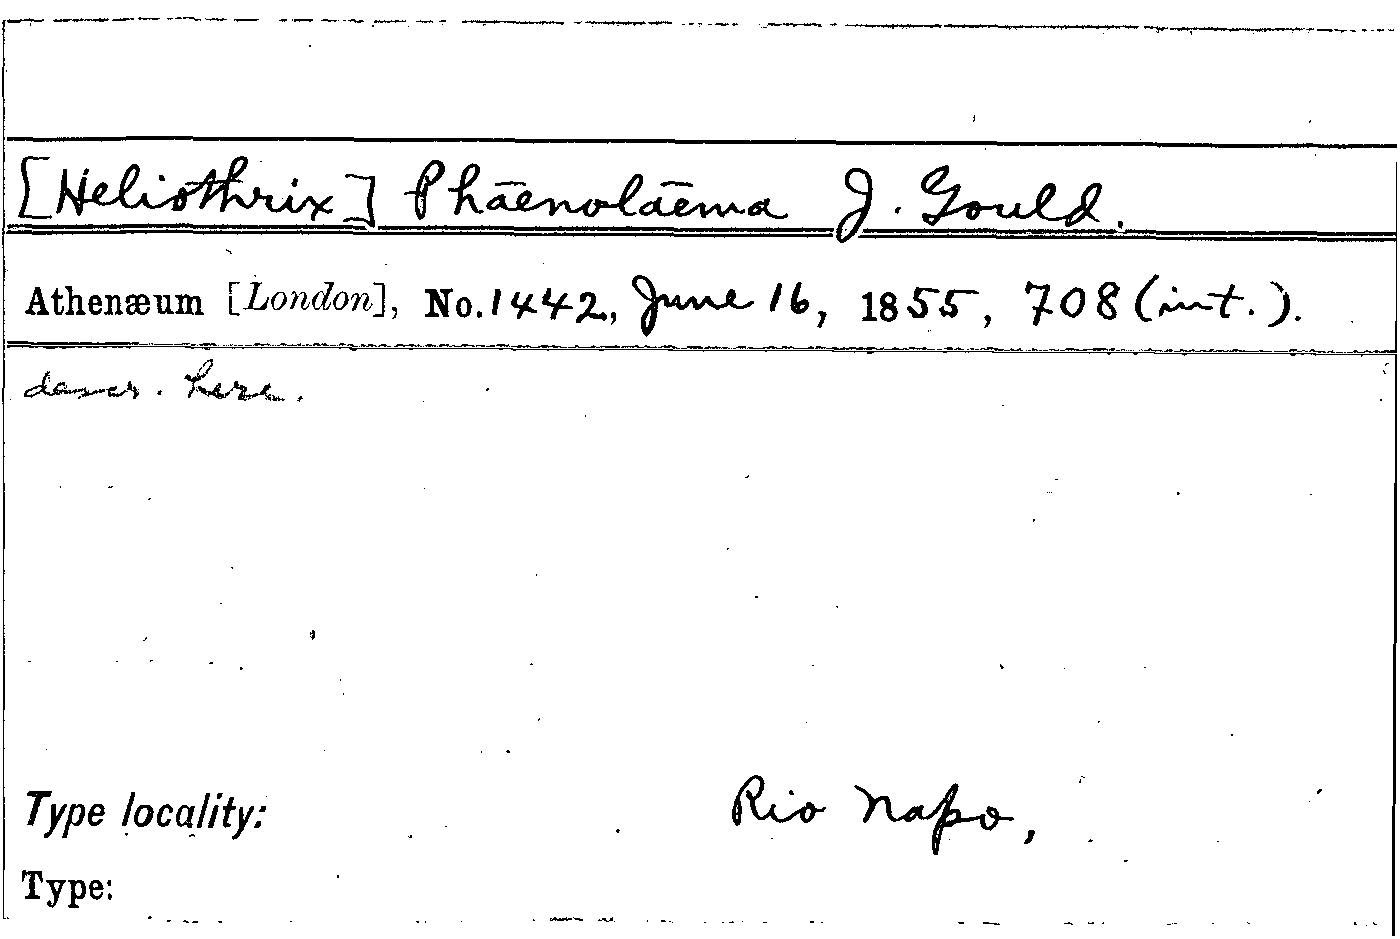 [Heliothrix] Phāenolāema J. Gould.
Athenæum [London], No. 1442, June 16, 1855, 708 (int.).
descr. here.
Type locality: Rio Napo,
Type: